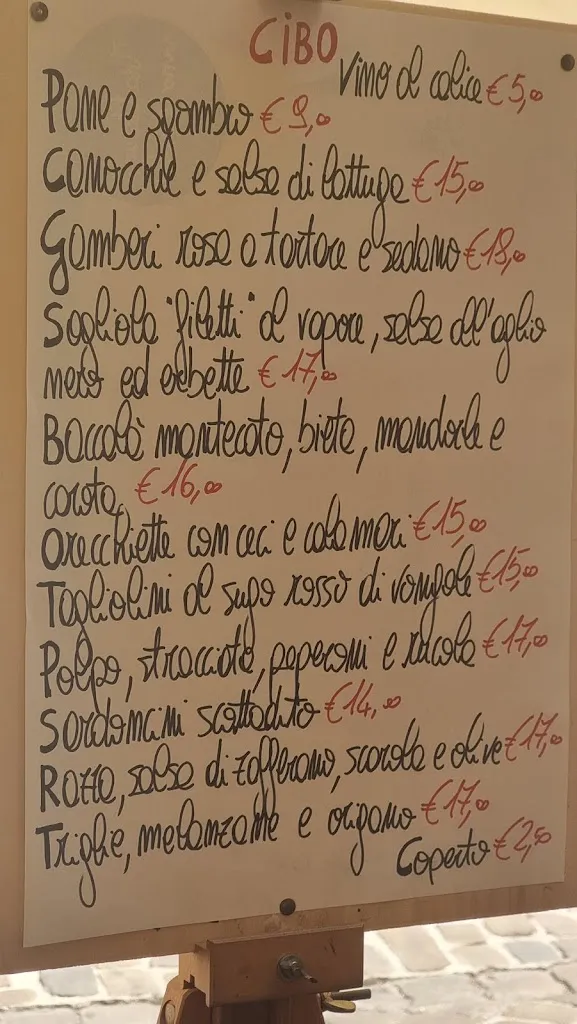 CIBO
Vino al calice €5,00
Pane e sgombro €9,00
Canocchie e salsa di lattuga €15,00
Gamberi rosa a tartare e sedano €18,00
Sogliola "filetti" al vapore, salsa all'aglio
nero ed erbette €17,00
Baccalà mantecato, bieta, mandorle e
carota €16,00
Orecchiette con ceci e calamari €15,00
Tagliolini al sugo rosso di vongole €15,00
Polpo, stracciata, peperoni e rucola €17,00
Sardoncini scottadito €14,00
Razza, salsa di zafferano, scarola e olive €17,00
Triglie, melanzane e origano €17,00
Coperto €2,50